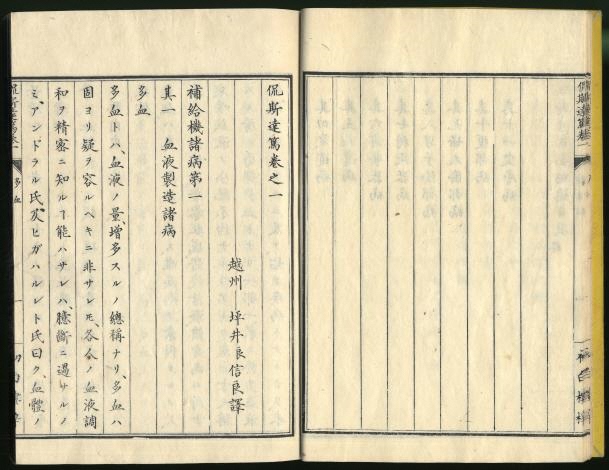 侃斯達篤卷之一
越州 坪井良信良譯
補給機諸病第一
其一 血液製造諸病
多血
多血トハ、血液ノ量、增多スルノ總稱ナリ、多血ハ
固ヨリ疑ヲ容ルヘキニ非サレモ、各今ノ血液調
和ヲ精密ニ知ルヿ能ハサレハ、臆斷ニ過サルノ
ミ、アンドラル氏、及ヒガハルレト氏曰ク、血體ノ
多血